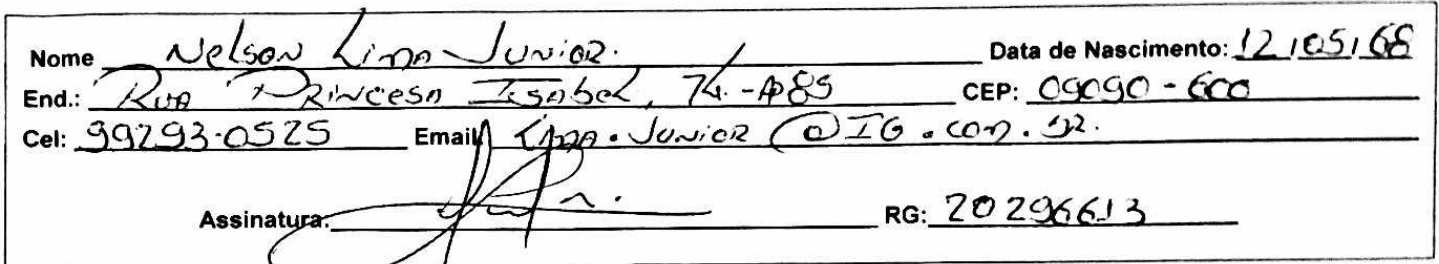 Nome Nelson Lima Junior. Data de Nascimento: 12/05/68
End.: Rua Princesa Isabel, 74 - AP85 CEP: 09090-600
Cel: 99293-0525 Email Lima.Junior@IG.com.br.
Assinatura: RG: 20296613